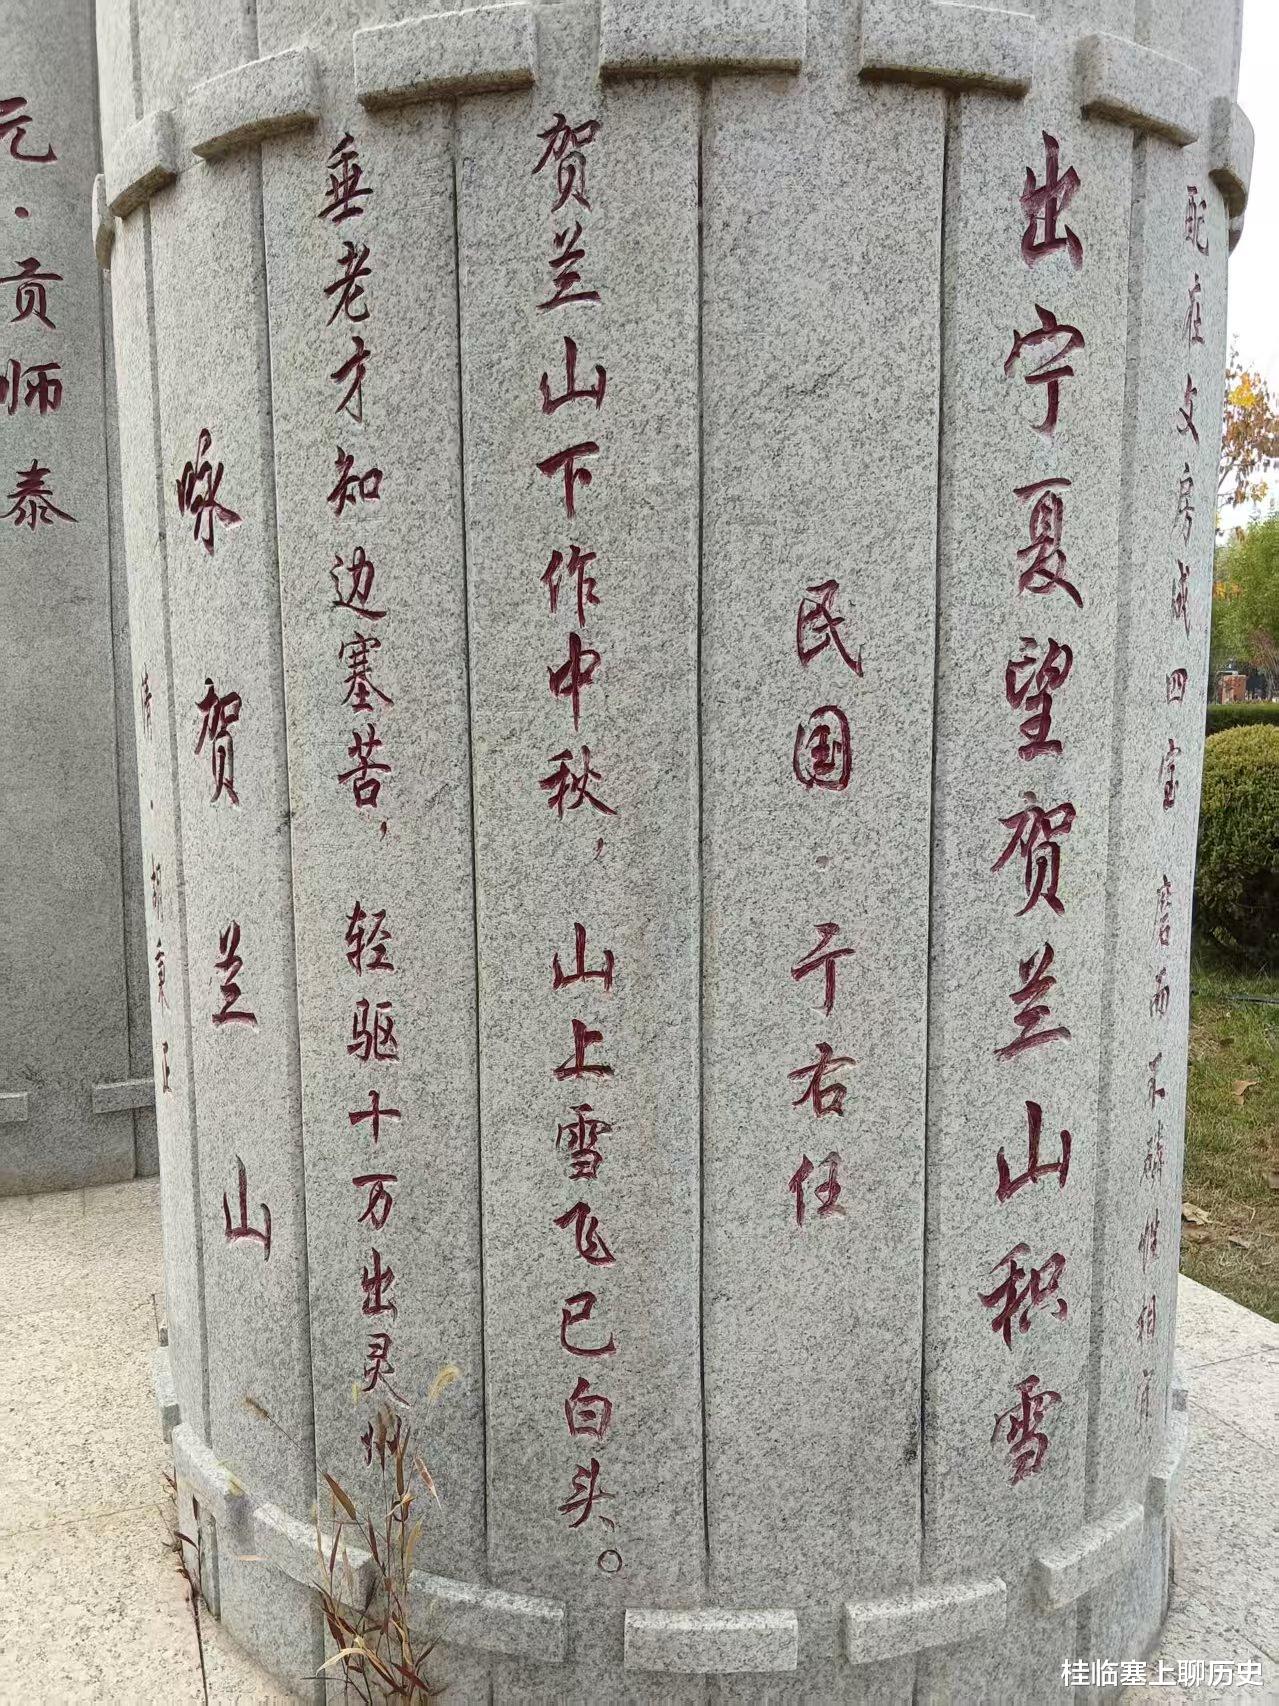 配在文房成四宝 磨而不磷性相
出宁夏望贺兰山积雪
民国·于右任
贺兰山下作中秋，山上雪飞已白头。
垂老才知边塞苦，轻驱十万出灵州
咏贺兰山
清·胡秉正
元·贡师泰
桂临塞上聊历史